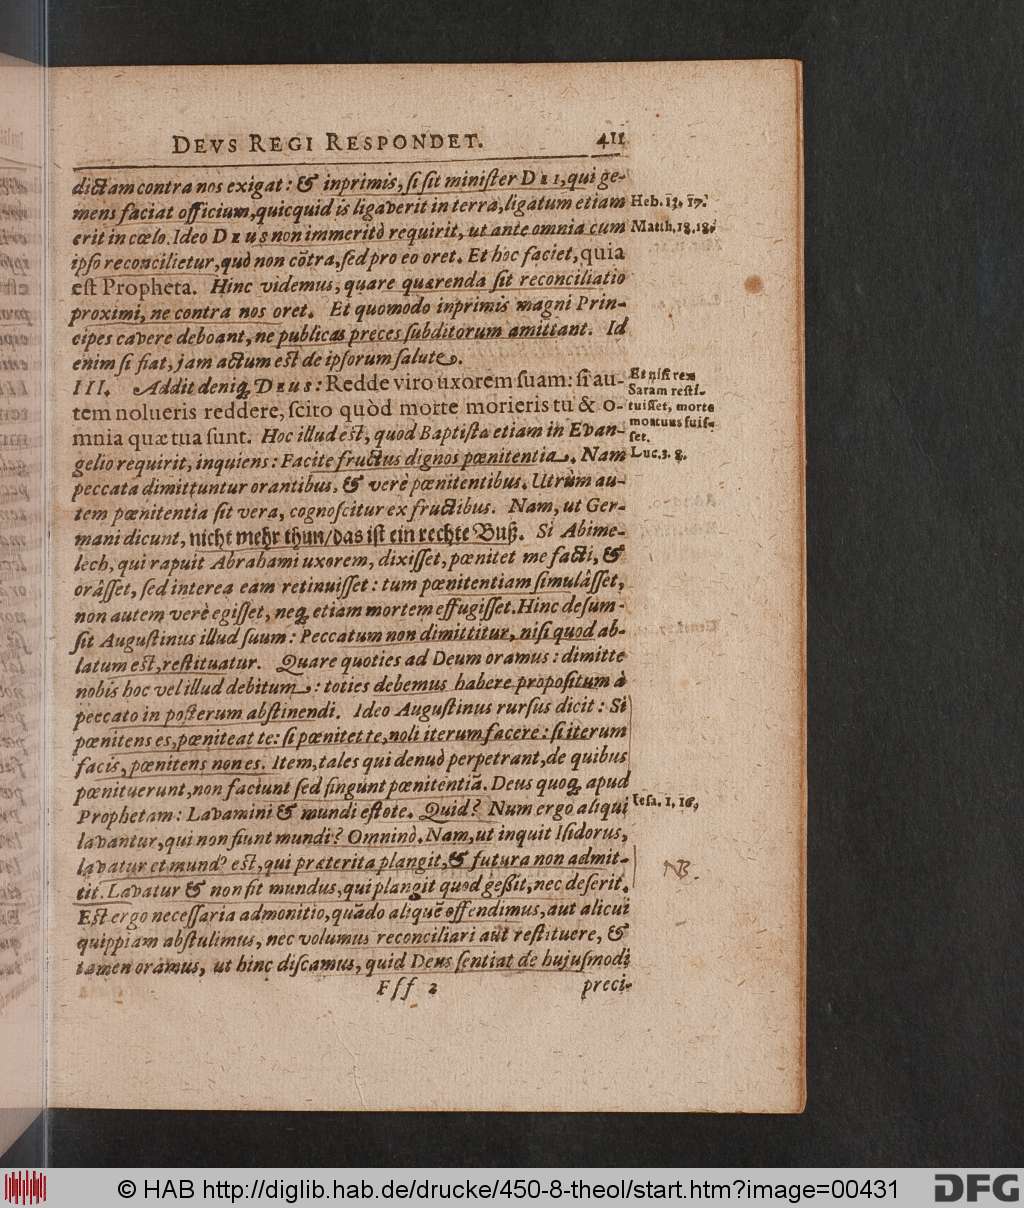 DEVS REGI RESPONDET. 411
dictam contra nos exigat: & inprimis, si sit minister DEI, qui ge-
mens faciat officium, quicquid is ligaverit in terra, ligatum etiam
Heb. 13. 17.
erit in cœlo. Ideo DEUS non immeritò requirit, ut ante omnia cum
Matth. 18. 18.
ipso reconcilietur, quò non cõtra, sed pro eo oret. Et hoc faciet, quia
est Propheta. Hinc videmus, quare quærenda sit reconciliatio
proximi, ne contra nos oret. Et quomodo inprimis magni Prin-
cipes cavere deboant, ne publicas preces subditorum amittant. Id
enim si fiat, jam actum est de ipsorum salute.
III. Addit deniq; DEUS: Redde viro uxorem suam: si au-
Et nisi rex
Saram resti-
tem nolueris reddere, scito quòd morte morieris tu & o-
tuisset, morte
mortuus fuis-
mnia quæ tua sunt. Hoc illud est, quod Baptista etiam in Evan-
set.
gelio requirit, inquiens: Facite fructus dignos pœnitentia. Nam
Luc. 3. 8.
peccata dimittuntur orantibus, & verè pœnitentibus. Utrùm au-
tem pœnitentia sit vera, cognoscitur ex fructibus. Nam, ut Ger-
mani dicunt, nicht mehr thun/das ist ein rechte Buß. Si Abime-
lech, qui rapuit Abrahami uxorem, dixisset, pœnitet me facti, &
orâsset, sed interea eam retinuisset: tum pœnitentiam simulâsset,
non autem verè egisset, neq; etiam mortem effugisset. Hinc desum-
sit Augustinus illud suum: Peccatum non dimittitur, nisi quod ab-
latum est, restituatur. Quare quoties ad Deum oramus: dimitte
nobis hoc vel illud debitum: toties debemus habere propositum à
peccato in posterum abstinendi. Ideo Augustinus rursus dicit: Si
pœnitens es, pœniteat te: si pœnitet te, noli iterum facere: si iterum
facis, pœnitens non es. Item, tales qui denuò perpetrant, de quibus
pœnituerunt, non faciunt sed fingunt pœnitentiã. Deus quoq; apud
Prophetam: Lavamini & mundi estote. Quid? Num ergo aliqui
Iesa. 1, 16,
lavantur, qui non fiunt mundi? Omninò. Nam, ut inquit Isidorus,
lavatur et mund9 est, qui præterita plangit, & futura non admit-
NB.
tit. Lavatur & non fit mundus, qui plangit quod gessit, nec deserit.
Est ergo necessaria admonitio, quãdo aliquẽ offendimus, aut alicui
quippiam abstulimus, nec volumus reconciliari aut restituere, &
tamen oramus, ut hinc discamus, quid Deus sentiat de hujusmodi
Fff 2 preci-
© HAB http://diglib.hab.de/drucke/450-8-theol/start.htm?image=00431
DFG